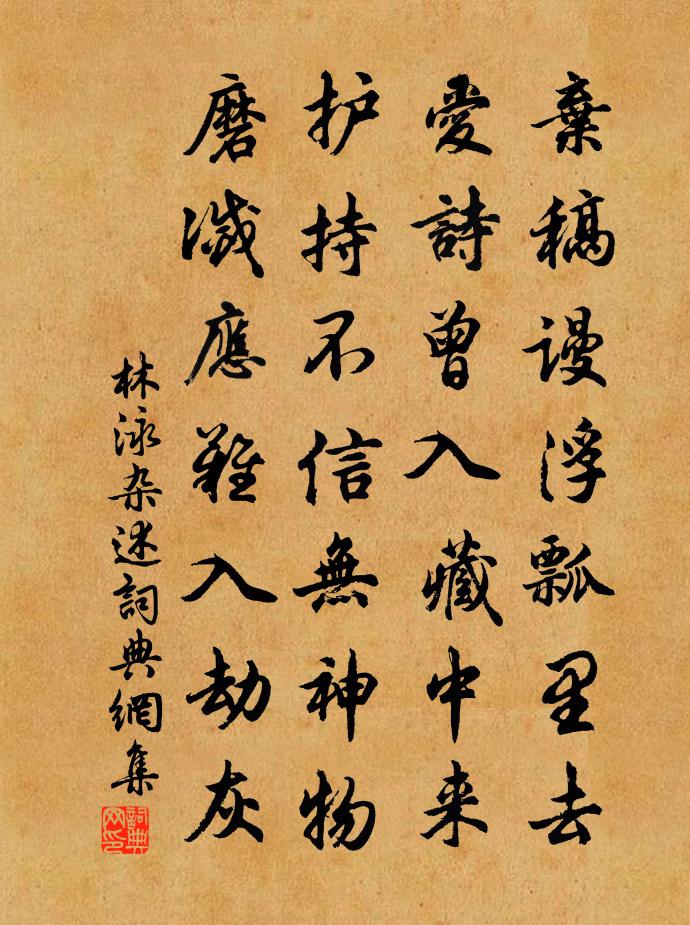 棄稿謾浮瓢里去
愛詩曾入藏中来
护持不信無神物
磨滅應難入劫灰
林泳杂述詞典網集
詞典网印